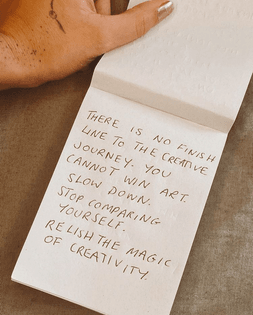 THERE IS NO FINISH
LINE TO THE CREATIVE
JOURNEY. YOU
CANNOT WIN ART.
SLOW DOWN.
STOP COMPARING
YOURSELF.
RELISH THE MAGIC
OF CREATIVITY.